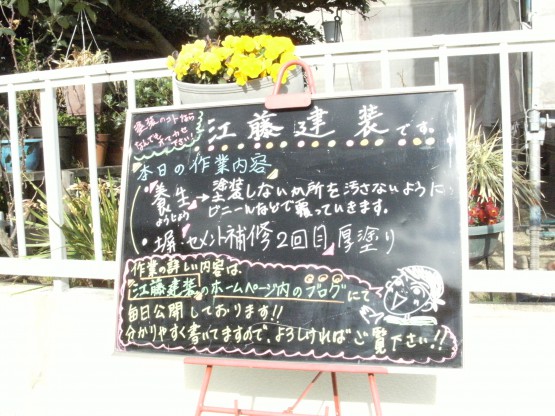 塗装のコトなら
なんでもおまかせ
下さい!!
江藤建装です。
本日の作業内容
・養生→塗装しないか所を汚さないように
ようじょう
ビニールなどで覆っていきます。
・塀:セメント補修2回目厚塗り
作業の詳しい内容は、
江藤建装のホームページ内のブログにて
毎日公開しております!!
分かりやすく書いてますので、よろしければご覧下さい!!